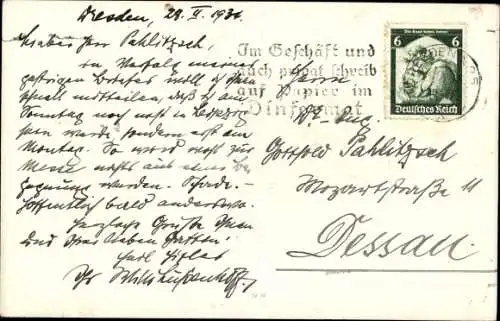 Dresden, 28. II. 1936.
Lieber Herr Pahlitzsch,
in meines
gestrigen Briefes will ich Ihnen
schnell mitteilen, daß ich am
Sonntag noch nicht in Leipzig
sein werde, sondern erst am
Montag. So wird wohl zur
Messe nichts aus einer Be-
gegnung werden. Schade. -
Hoffentlich bald anderswo.
Herzliche Grüße Ihnen
und Ihrer lieben Gattin!
Heil Hitler!
Ihr Willi
Im Geschäft und
auch privat schreib
auf Papier im
Dinformat
6 6
Deutsches Reich
Herrn
Gottfried Pahlitzsch
Mozartstraße 11
Dessau.